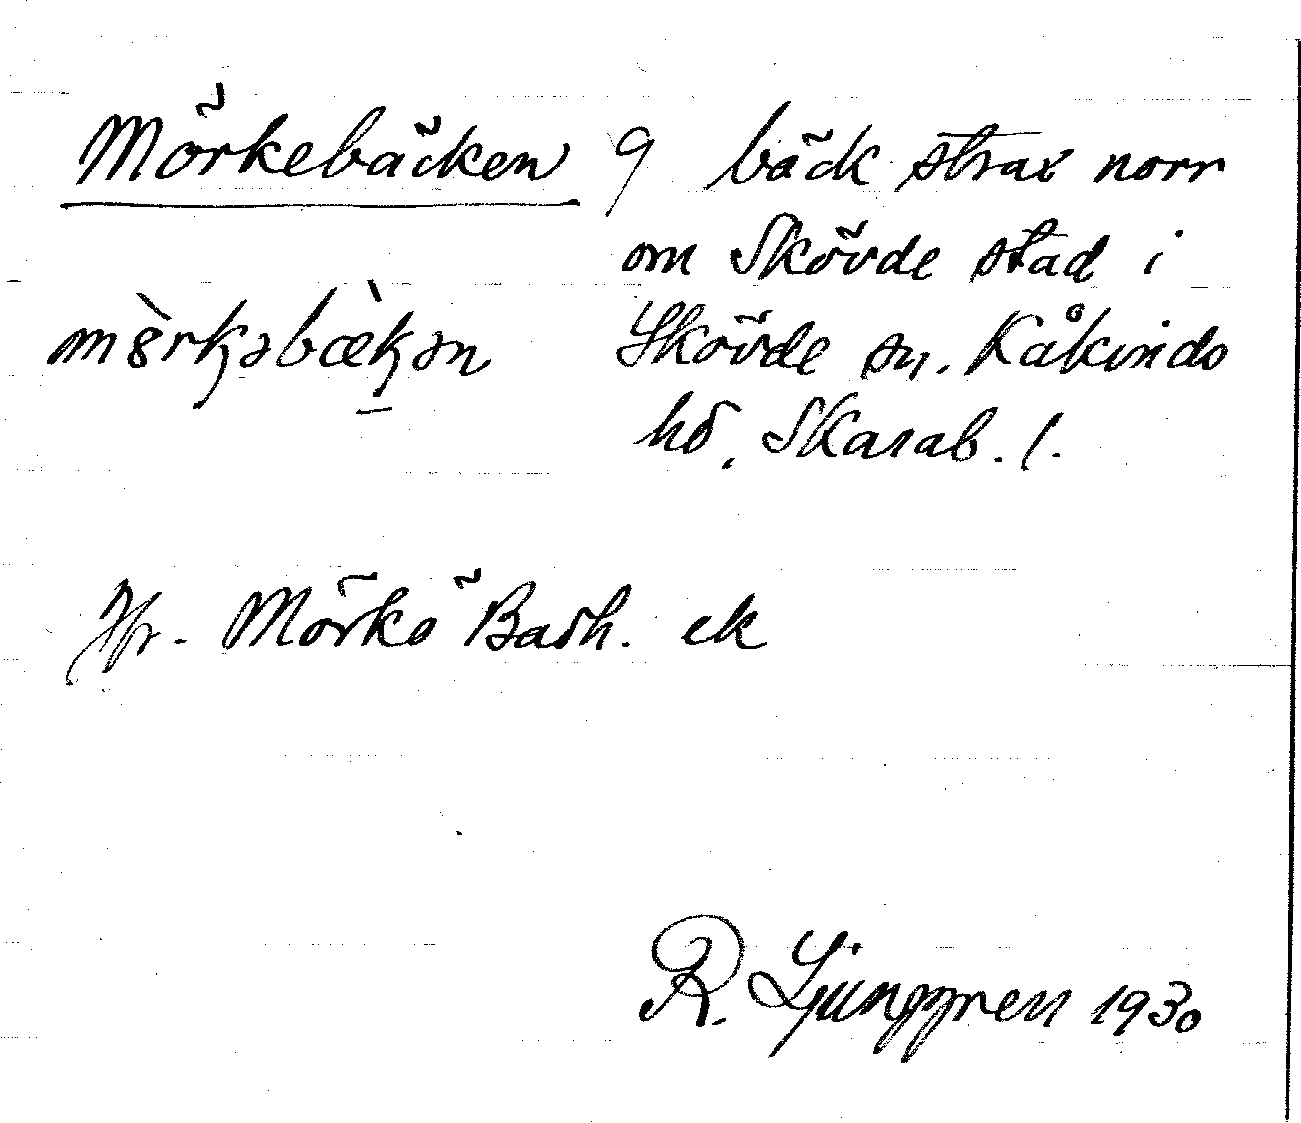 Mörkebäcken 9 bäck strax norr
om Skövde stad i
Skövde sn. Kåkinds
hd. Skarab. l.
mörkəbækən
Jfr. Mörkö Badh. ek
R. Ljunggren 1930